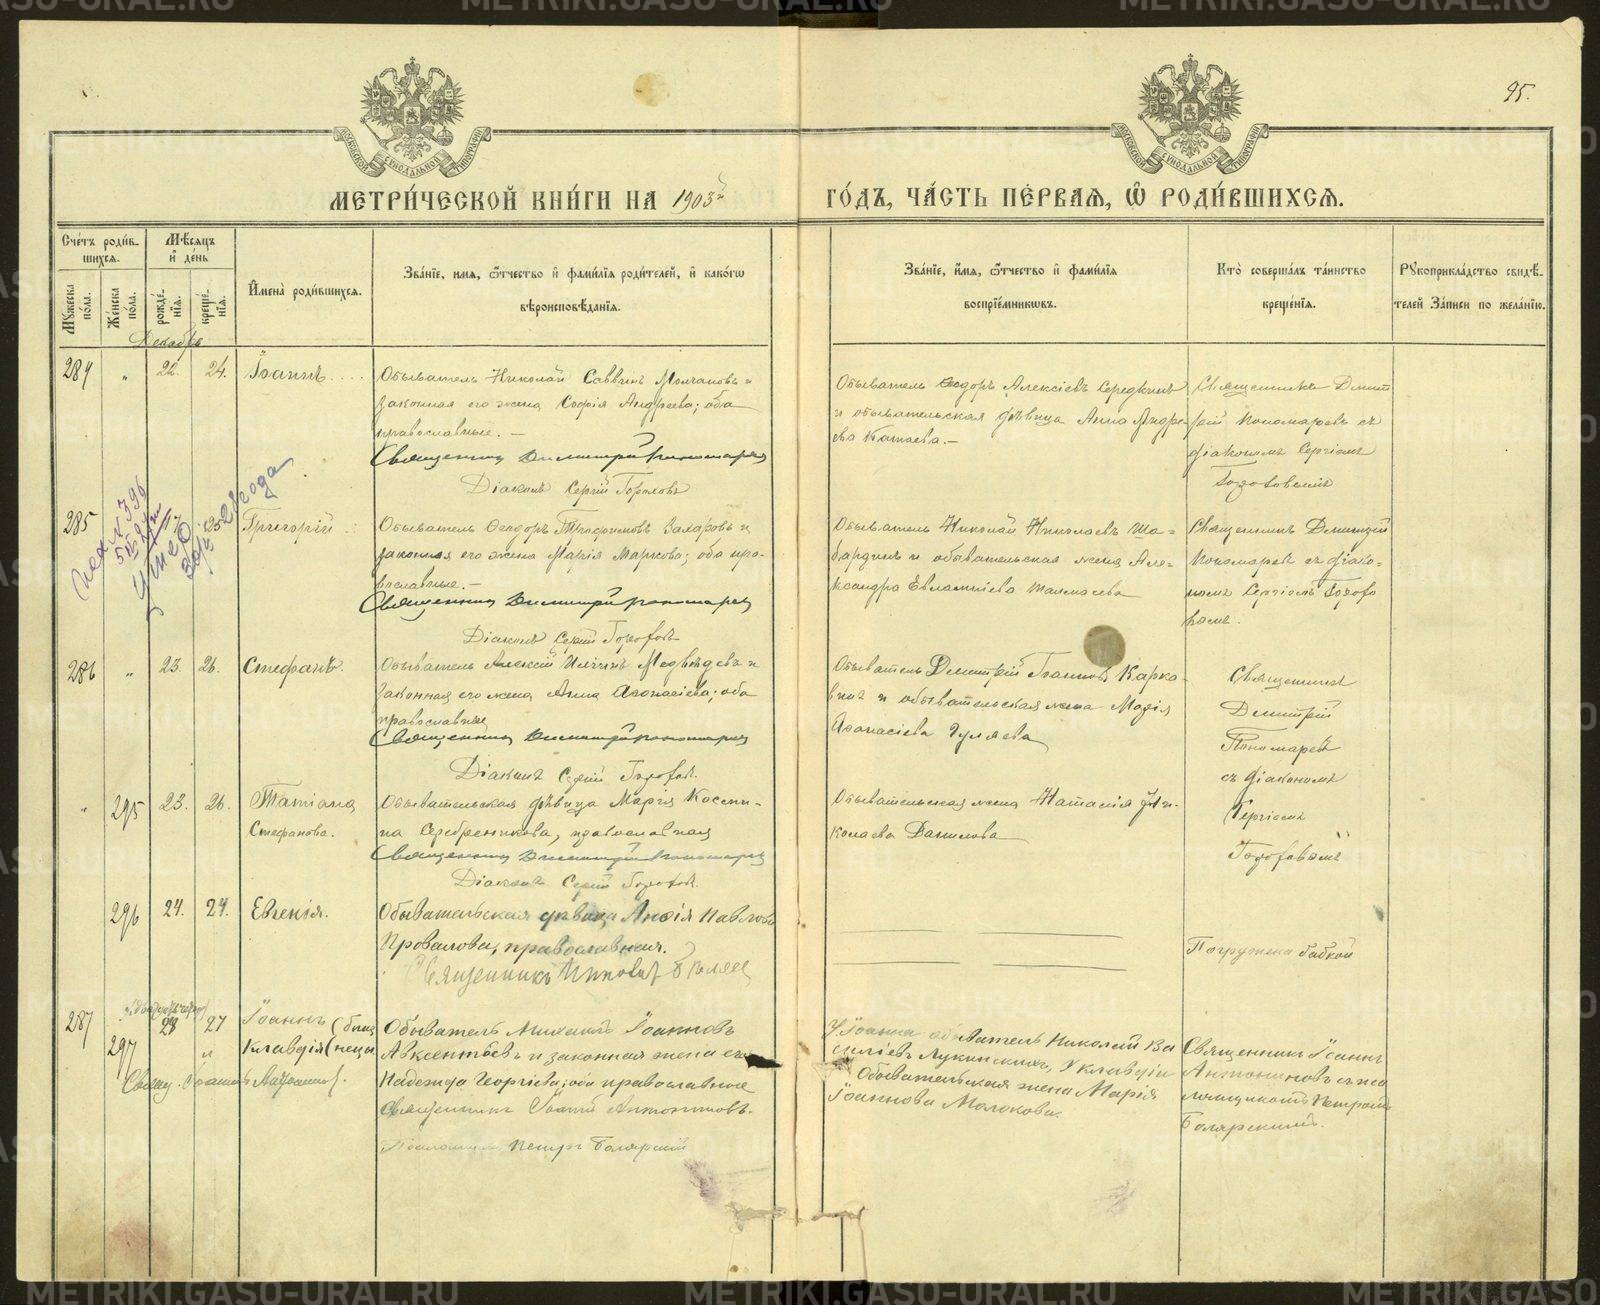 95.
МЕТРИ́ЧЕСКОЙ КНИ́ГИ НА 1903й ГО́ДЪ, ЧА́СТЬ ПЕ́РВАЯ, Ѿ РОДИ́ВШИХСЯ.
Сче́тъ роди́вшихся.
Му́жеска по́ла.
Же́нска по́ла.
Мѣ́сяцъ и҆ де́нь
рожде́нїя.
креще́нїя.
И҆мена̀ роди́вшихся.
Зва́нїе, и́мя, ѻ҆́тчество и҆ фами́лїя роди́телей, и҆ како́гѡ
вѣроисповѣ́данїя.
Зва́нїе, и́мя, ѻ҆́тчество и҆ фами́лїя
воспрїе́мниковъ.
Кто̀ соверша́лъ та́инство
креще́нїя.
Рукоприкла́дство свидѣ́-
телей За́писи по жела́нїю.
Декабрь
284 " 22. 24. Іоаннъ
Обыватель Николай Саввинъ Молчановъ и
законная его жена Софія Андреева; оба
православные. —
Священник Димитрій Пономарев
Діаконъ Сергій
Обыватель Ѳеодоръ Алексіевъ Середкинъ
и обывательская дѣвица Анна Андре-
ева Катаева. —
Священникъ Дмит
рій Пономаревъ съ
діакономъ Сергіемъ
285 17 25 Григорій
умер
28 года
Обыватель Ѳеодоръ Трофимовъ Захаровъ и
законная его жена Марія Маркова; оба пра-
вославные. —
Священник Димитрій Пономарев
Діаконъ Сергій
Обыватель Николай Николаевъ Ша-
бардинъ и обывательская жена Але-
ксандра Евлампіева
Священникъ Дмитрій
Пономаревъ съ діако-
номъ Сергіемъ
286 " 23. 26. Стефанъ.
Обыватель Алексій Ильинъ Медвѣдевъ и
законная его жена Анна Аѳанасіева; оба
православные
Священник Димитрій Пономарев
Діаконъ Сергій
Обыватель Дмитрій Іоанновъ
и обывательская жена Марія
Аѳанасіева Гуляева
Священникъ
Дмитрій
Пономаревъ
съ діакономъ
Сергіемъ
" 295 23. 26. Татіана
Стефанова.
Обывательская дѣвица Марія Косми-
на Серебренникова, православная
Священник Димитрій Пономарев
Діаконъ Сергій
Обывательская жена Наталія Ни-
колаева Данилова
296 24. 24. Евгенія.
Обывательская дѣвица Анѳія Павлова
Провалова, православная.
Священникъ
Погружена бабкой
287 28 27 Іоаннъ (близ
297 " Клавдія (нецы
Свящ. Іоаннъ Антониновъ.
Обыватель Михаилъ Іоанновъ
Авксентьевъ и законная жена его
Надежда Георгіева; оба православные
Священникъ Іоаннъ Антониновъ.
Псаломщикъ Петръ Боляровскій
У Іоанна обыватель Николай Ва
силіевъ Лукинскихъ, У Клавдіи
Обывательская жена Марія
Іоаннова Молокова.
Священникъ Іоаннъ
Антониновъ съ пса
ломщикомъ Петромъ